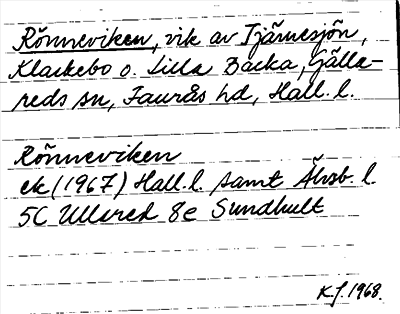 Rönneviken, vik av Tjärnesjön,
Klackebo o. Lilla Backa, Gälla-
reds sn, Faurås hd, Hall. l.
Rönneviken
ek (1967) Hall. l. samt Älvsb. l.
5C Ullared 8e Sundhult
K.J. 1968.